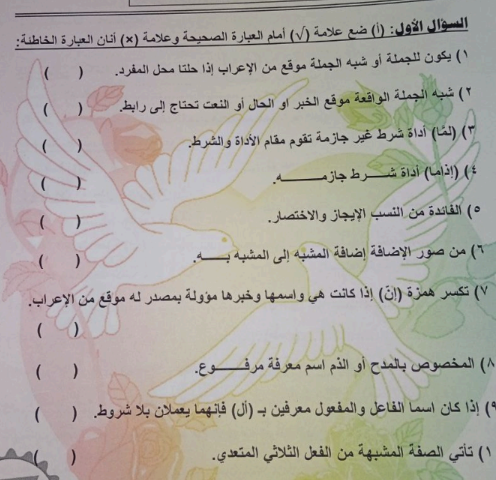 السؤال الأول: (أ) ضع علامة (√) أمام العبارة الصحيحة وعلامة (×) أنان العبارة الخاطئة:
١) يكون للجملة أو شبه الجملة موقع من الإعراب إذا حلتا محل المفرد. ( )
٢) شبه الجملة الواقعة موقع الخبر او الحال أو النعت تحتاج إلى رابط. ( )
٣) (لمّا) أداة شرط غير جازمة تقوم مقام الأداة والشرط. ( )
٤) (إذاما) أداة شـــرط جازمــــه. ( )
٥) الفائدة من النسب الإيجاز والاختصار. ( )
٦) من صور الإضافة إضافة المشبّه إلى المشبه بـــه. ( )
٧) تكسر همزة (إنّ) إذا كانت هي واسمها وخبرها مؤولة بمصدر له موقع من الإعراب.
( )
٨) المخصوص بالمدح أو الذم اسم معرفة مرفـــوع. ( )
٩) إذا كان اسما الفاعل والمفعول معرفين بـ (أل) فإنهما يعملان بلا شروط. ( )
١) تأتي الصفة المشبهة من الفعل الثلاثي المتعدي. ( )